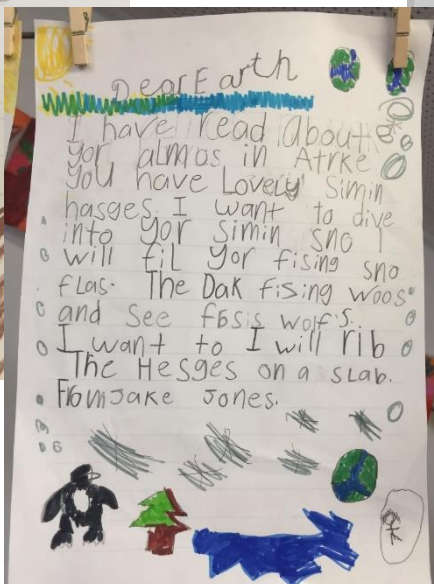 Dear Earth
I have read about
yor almos in Atrke
you have Lovely simin
hasges. I want to dive
into yor simin sno I
will fil yor fising sno
flas. The Dak fising woos
and see fbsis wolf's.
I want to I will rib
The Hesges on a slab.
From Jake Jones.